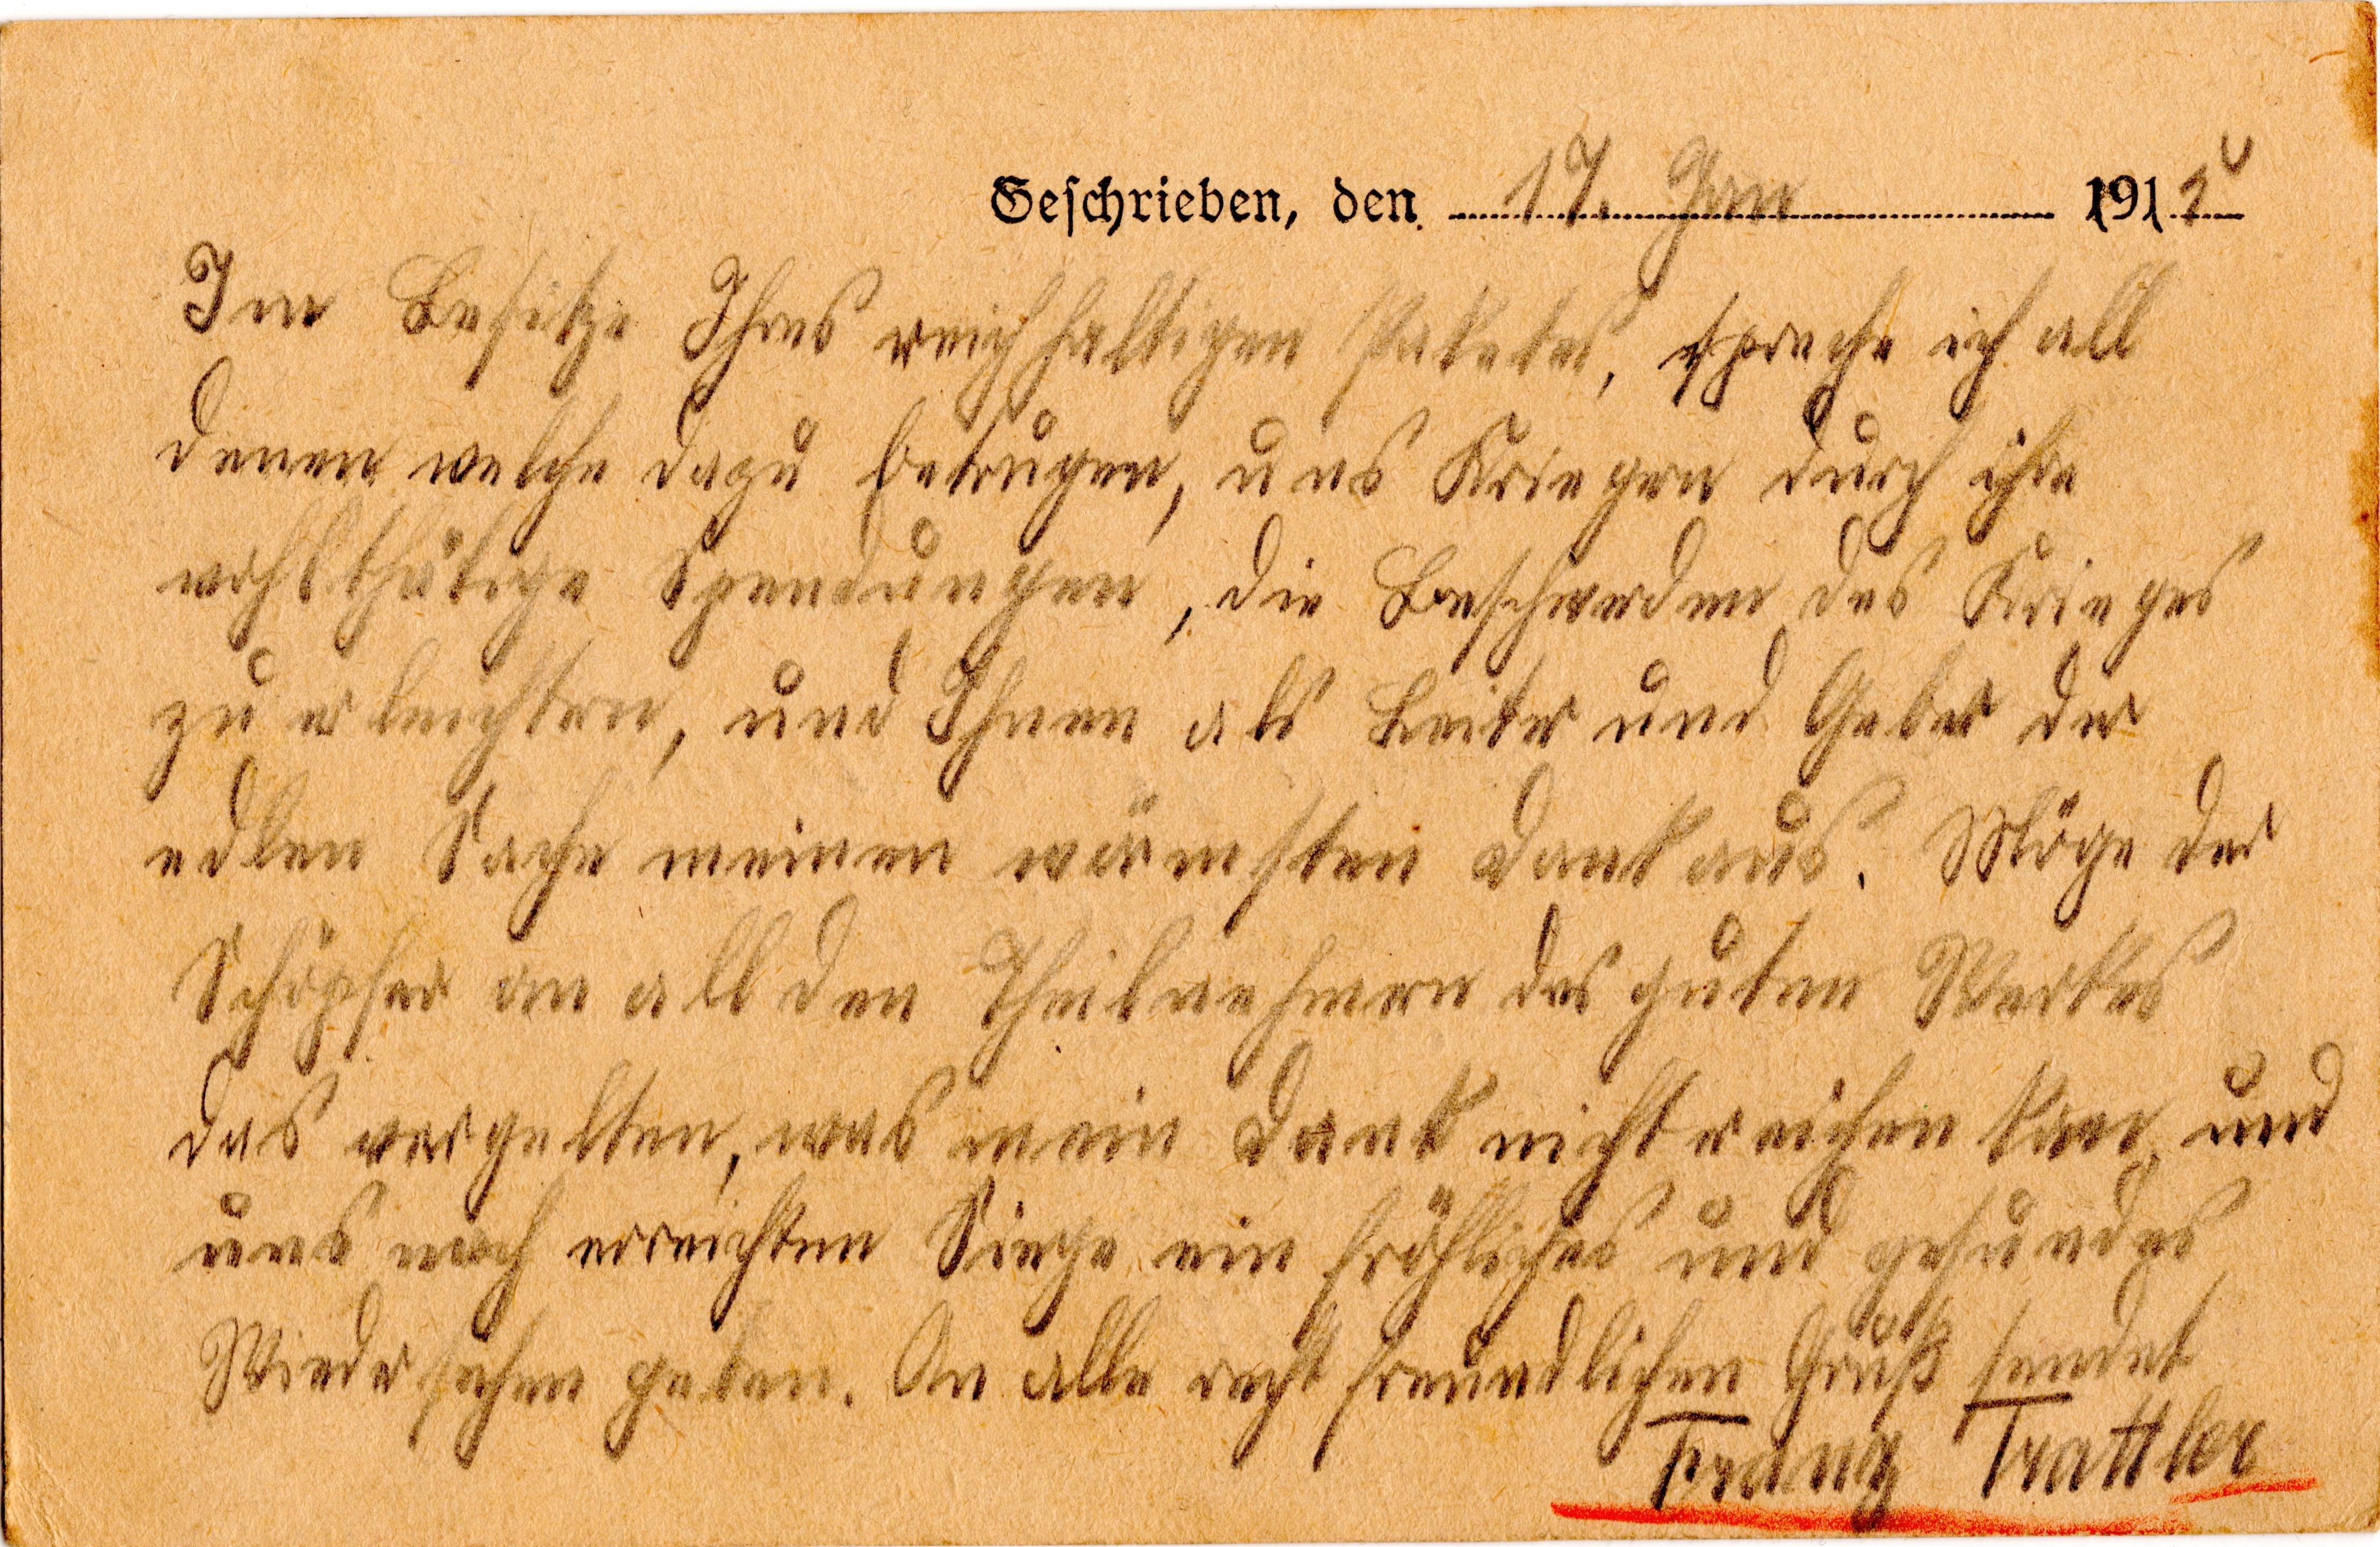 Geschrieben, den 17. Jan 1915
Im Besitze Ihres reichhaltigen Paketes, spreche ich all
denen welche dazu betrugen, uns Kriegern durch ihre
wohlthätige Spendungen, die Beschwerden des Krieges
zu erleichtern, und Ihnen als Leiter und Geber der
edlen Sache meinen wärmsten Dank aus. Möge der
Schöpfer an all den Theilnehmern des guten Werkes
das vergelten, was mein Dank nicht reichen kann, und
uns nach erreichten Siege ein fröhliches und gesundes
Wiedersehen geben. An alle recht freundlichen Gruß sendet
Franz Trattler